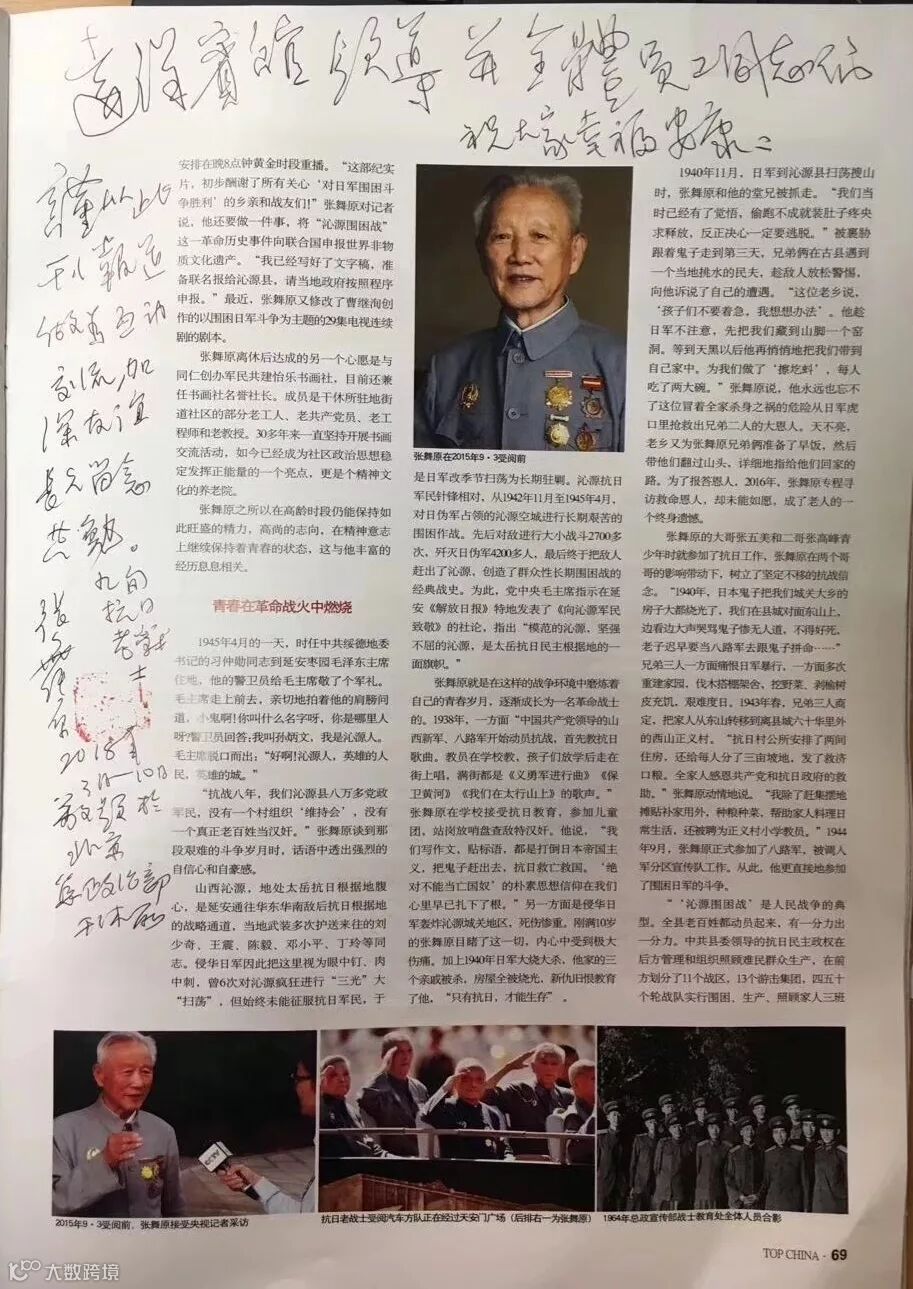 祝大家幸福安康
安排在晚8点钟黄金时段重播。“这部纪实
片，初步酬谢了所有关心‘对日军围困斗
争胜利’的乡亲和战友们!”张舞原对记者
说，他还要做一件事，将“沁源围困战”
这一革命历史事件向联合国申报世界非物
质文化遗产。“我已经写好了文字稿，准
备联名报给沁源县，请当地政府按照程序
申报。”最近，张舞原又修改了曹继洵创
作的以围困日军斗争为主题的29集电视连续
剧的剧本。
张舞原离休后达成的另一个心愿是与
同仁创办军民共建怡乐书画社，目前还兼
任书画社名誉社长。成员是干休所驻地街
道社区的部分老工人、老共产党员、老工
程师和老教授。30多年来一直坚持开展书画
交流活动，如今已经成为社区政治思想稳
定发挥正能量的一个亮点，更是个精神文
化的养老院。
张舞原之所以在高龄时段仍能保持如
此旺盛的精力，高尚的志向，在精神意志
上继续保持着青春的状态，这与他丰富的
经历息息相关。
青春在革命战火中燃烧
1945年4月的一天，时任中共绥德地委
书记的习仲勋同志到延安枣园毛泽东主席
住地，他的警卫员给毛主席敬了个军礼。
毛主席走上前去，亲切地拍着他的肩膀问
道，小鬼啊!你叫什么名字呀，你是哪里人
呀?警卫员回答:我叫孙炳文，我是沁源人。
毛主席脱口而出：“好啊!沁源人，英雄的人
民，英雄的城。”
“抗战八年，我们沁源县八万多党政
军民，没有一个村组织‘维持会’，没有
一个真正老百姓当汉奸。”张舞原谈到那
段艰难的斗争岁月时，话语中透出强烈的
自信心和自豪感。
山西沁源，地处太岳抗日根据地腹
心，是延安通往华东华南敌后抗日根据地
的战略通道，当地武装多次护送来往的刘
少奇、王震、陈毅、邓小平、丁玲等同
志。侵华日军因此把这里视为眼中钉、肉
中刺，曾6次对沁源疯狂进行“三光”大
“扫荡”，但始终未能征服抗日军民，于
张舞原在2015年9·3受阅前
是日军改季节扫荡为长期驻剿。沁源抗日
军民针锋相对，从1942年11月至1945年4月，
对日伪军占领的沁源空城进行长期艰苦的
围困作战。先后对敌进行大小战斗2700多
次，歼灭日伪军4200多人，最终于把敌人
赶出了沁源，创造了群众性长期围困战的
经典战史。为此，党中央毛主席指示在延
安《解放日报》特地发表了《向沁源军民
致敬》的社论，指出“模范的沁源，坚强
不屈的沁源，是太岳抗日民主根据地的一
面旗帜。”
张舞原就是在这样的战争环境中磨炼着
自己的青春岁月，逐渐成长为一名革命战士
的。1938年，一方面“中国共产党领导的山
西新军、八路军开始动员抗战，首先教抗日
歌曲。教员在学校教，孩子们放学后走在
街上唱，满街都是《义勇军进行曲》《保
卫黄河》《我们在太行山上》的歌声。”
张舞原在学校接受抗日教育，参加儿童
团，站岗放哨盘查敌特汉奸。他说，“我
们写作文，贴标语，都是打倒日本帝国主
义，把鬼子赶出去，抗日救亡救国。‘绝
对不能当亡国奴’的朴素思想信仰在我们
心里早已扎下了根。”另一方面是侵华日
军轰炸沁源城关地区，死伤惨重。刚满10岁
的张舞原目睹了这一切，内心中受到极大
伤痛。加上1940年日军大烧大杀，他家的三
个亲戚被杀，房屋全被烧光，新仇旧恨教育
了他，“只有抗日，才能生存”。
1940年11月，日军到沁源县扫荡搜山
时，张舞原和他的堂兄被抓走。“我们当
时已经有了觉悟，偷跑不成就装肚子疼央
求释放，反正决心一定要逃脱。”被裹胁
跟着鬼子走到第三天，兄弟俩在古县遇到
一个当地挑水的民夫，趁敌人放松警惕，
向他诉说了自己的遭遇。“这位老乡说，
‘孩子们不要着急，我想想办法’。他趁
日军不注意，先把我们藏到山脚一个窑
洞。等到天黑以后他再悄悄地把我们带到
自己家中。为我们做了‘擦圪蚪’，每人
吃了两大碗。”张舞原说，他永远也忘不
了这位冒着全家杀身之祸的危险从日军虎
口里抢救出兄弟二人的大恩人。天不亮，
老乡又为张舞原兄弟俩准备了早饭，然后
带他们翻过山头，详细地指给他们回家的
路。为了报答恩人，2016年，张舞原专程寻
访救命恩人，却未能如愿，成了老人的一
个终身遗憾。
张舞原的大哥张五美和二哥张高峰青
少年时就参加了抗日工作，张舞原在两个哥
哥的影响带动下，树立了坚定不移的抗战信
念。“1940年，日本鬼子把我们城关大乡的
房子大都烧光了，我们在县城对面东山上，
边看边大声哭骂鬼子惨无人道，不得好死，
老子迟早要当八路军去跟鬼子拼命……”
兄弟三人一方面痛恨日军暴行，一方面多次
重建家园，伐木搭棚架舍，挖野菜、剥榆树
皮充饥，艰难度日。1943年春，兄弟三人商
定，把家人从东山转移到离县城六十华里外
的西山正义村。“抗日村公所安排了两间
住房，还给每人分了三亩坡地，发了救济
口粮。全家人感恩共产党和抗日政府的救
助。”张舞原动情地说。“我除了赶集摆地
摊贴补家用外，种粮种菜，帮助家人料理日
常生活，还被聘为正义村小学教员。”1944
年9月，张舞原正式参加了八路军，被调入
军分区宣传队工作。从此，他更直接地参加
了围困日军的斗争。
“‘沁源围困战’是人民战争的典
型。全县老百姓都动员起来，有一分力出
一分力。中共县委领导的抗日民主政权在
后方管理和组织照顾难民群众生产，在前
方划分了11个战区，13个游击集团，四五十
个轮战队实行围困、生产、照顾家人三班
交流，加
深友谊
共勉。
九旬
抗日
老战
士
张舞原
2018年
3月10日
于北京
2015年9·3受阅前，张舞原接受央视记者采访
抗日老战士受阅汽车方队正在经过天安门广场（后排右一为张舞原）
1964年总政宣传部战士教育处全体人员合影
TOP CHINA · 69
大数跨境